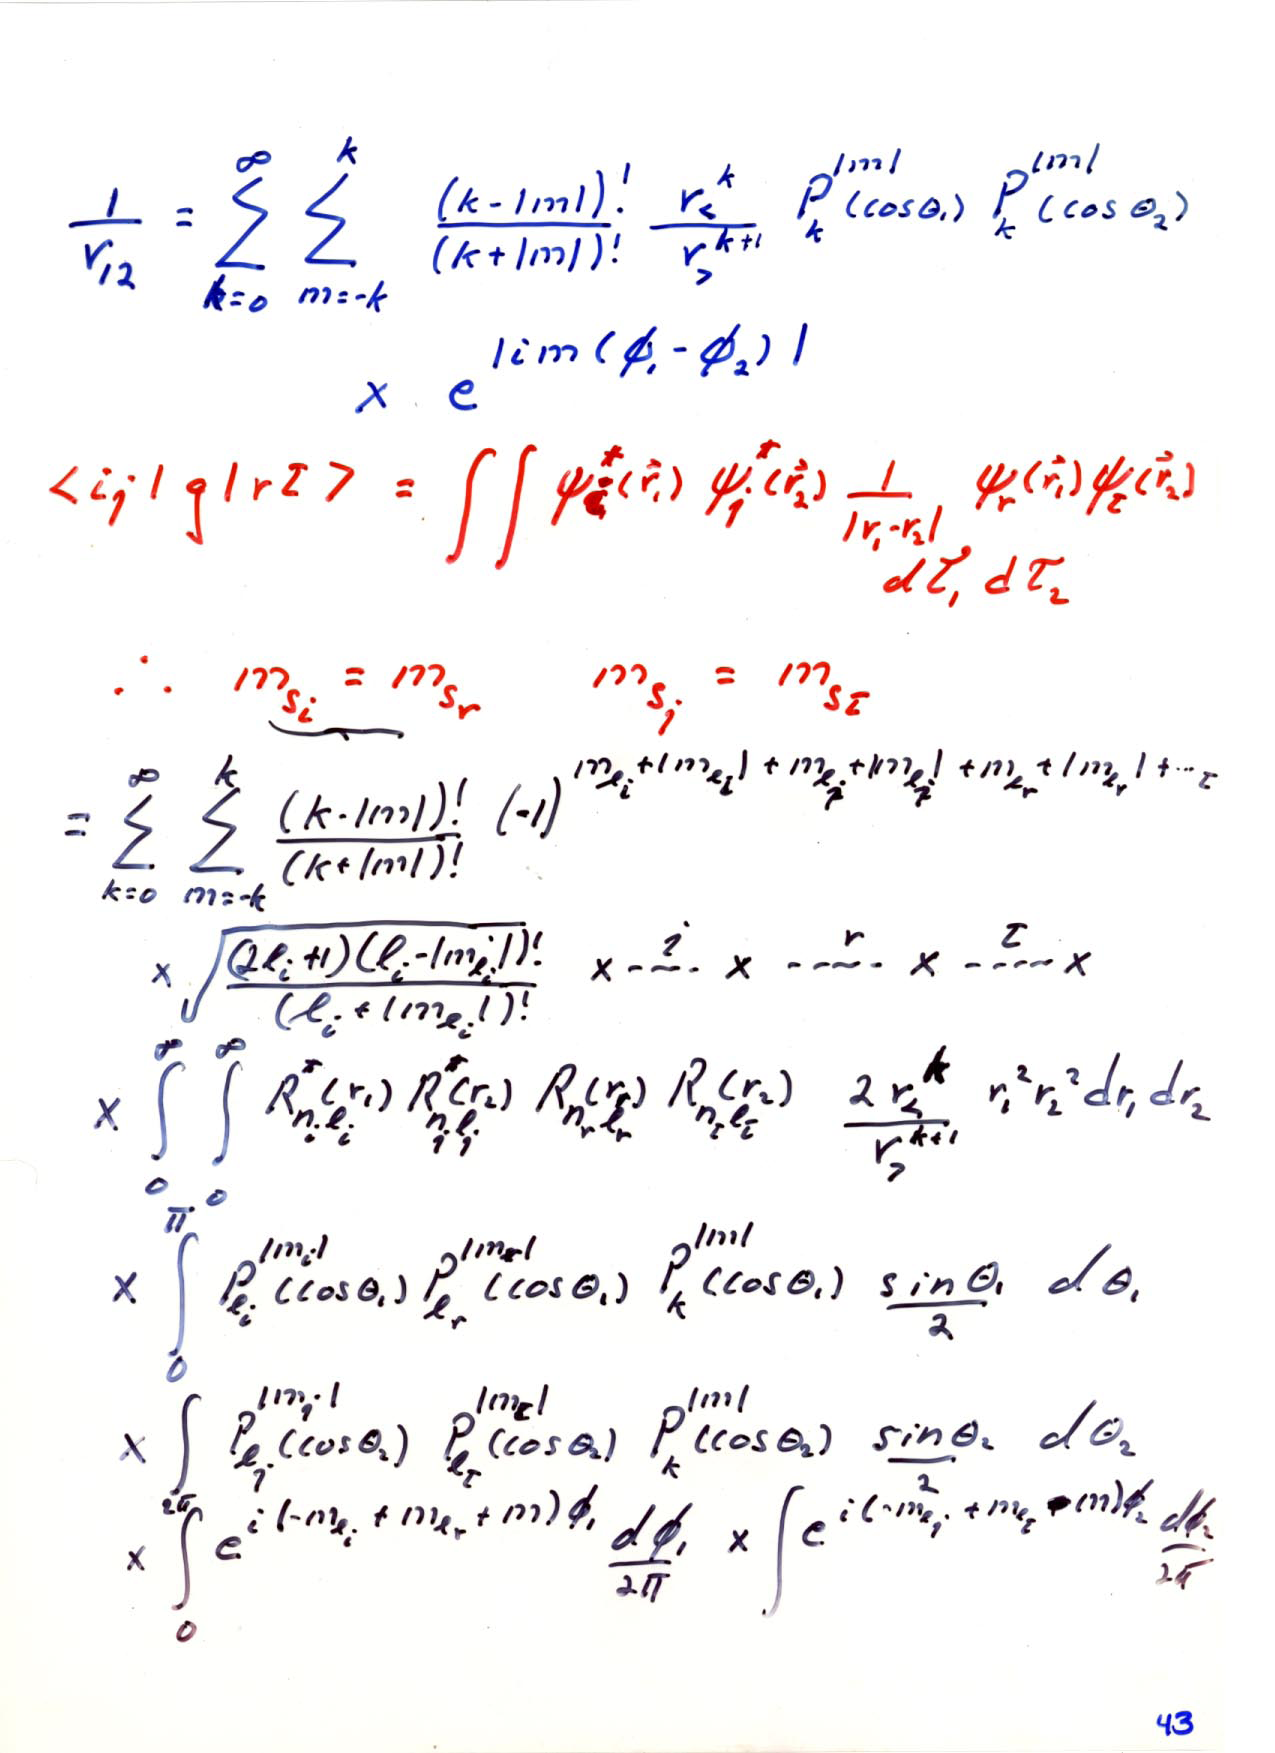 1/r₁₂ = ∑_{k=0}^{∞} ∑_{m=-k}^{k} (k-|m|)!/(k+|m|)! r_<^k/r_>^{k+1} P_k^{|m|}(cosθ₁) P_k^{|m|}(cosθ₂)
× e^{|im(ϕ₁-ϕ₂)|}
<ij|g|rτ> = ∫∫ ψ_i^*(r⃗₁) ψ_j^*(r⃗₂) 1/|r₁-r₂| ψ_r(r⃗₁) ψ_τ(r⃗₂)
dτ₁ dτ₂
∴ m_{s_i} = m_{s_r} m_{s_j} = m_{s_τ}
= ∑_{k=0}^{∞} ∑_{m=-k}^{k} (k-|m|)!/(k+|m|)! (-1)^{m_{ℓ_i}+|m_{ℓ_i}|+m_{ℓ_j}+|m_{ℓ_j}|+m_{ℓ_r}+|m_{ℓ_r}|+···τ}
× √((2ℓ_i+1)(ℓ_i-|m_{ℓ_i}|)!/(ℓ_i+|m_{ℓ_i}|)!) × --j-- × --r-- × --τ-- ×
× ∫_0^∞ ∫_0^∞ R^*_{n_iℓ_i}(r₁) R^*_{n_jℓ_j}(r₂) R_{n_rℓ_r}(r₁) R_{n_τℓ_τ}(r₂) 2r_<^k/r_>^{k+1} r₁²r₂²dr₁dr₂
× ∫_0^π P_{ℓ_i}^{|m_i|}(cosθ₁) P_{ℓ_r}^{|m_r|}(cosθ₁) P_k^{|m|}(cosθ₁) sinθ₁/2 dθ₁
× ∫ P_{ℓ_j}^{|m_j|}(cosθ₂) P_{ℓ_τ}^{|m_τ|}(cosθ₂) P_k^{|m|}(cosθ₂) sinθ₂/2 dθ₂
× ∫_0^{2π} e^{i(-m_{ℓ_i}+m_{ℓ_r}+m)ϕ₁} dϕ₁/2π × ∫ e^{i(-m_{ℓ_j}+m_{ℓ_τ}-m)ϕ₂} dϕ₂/2π
43